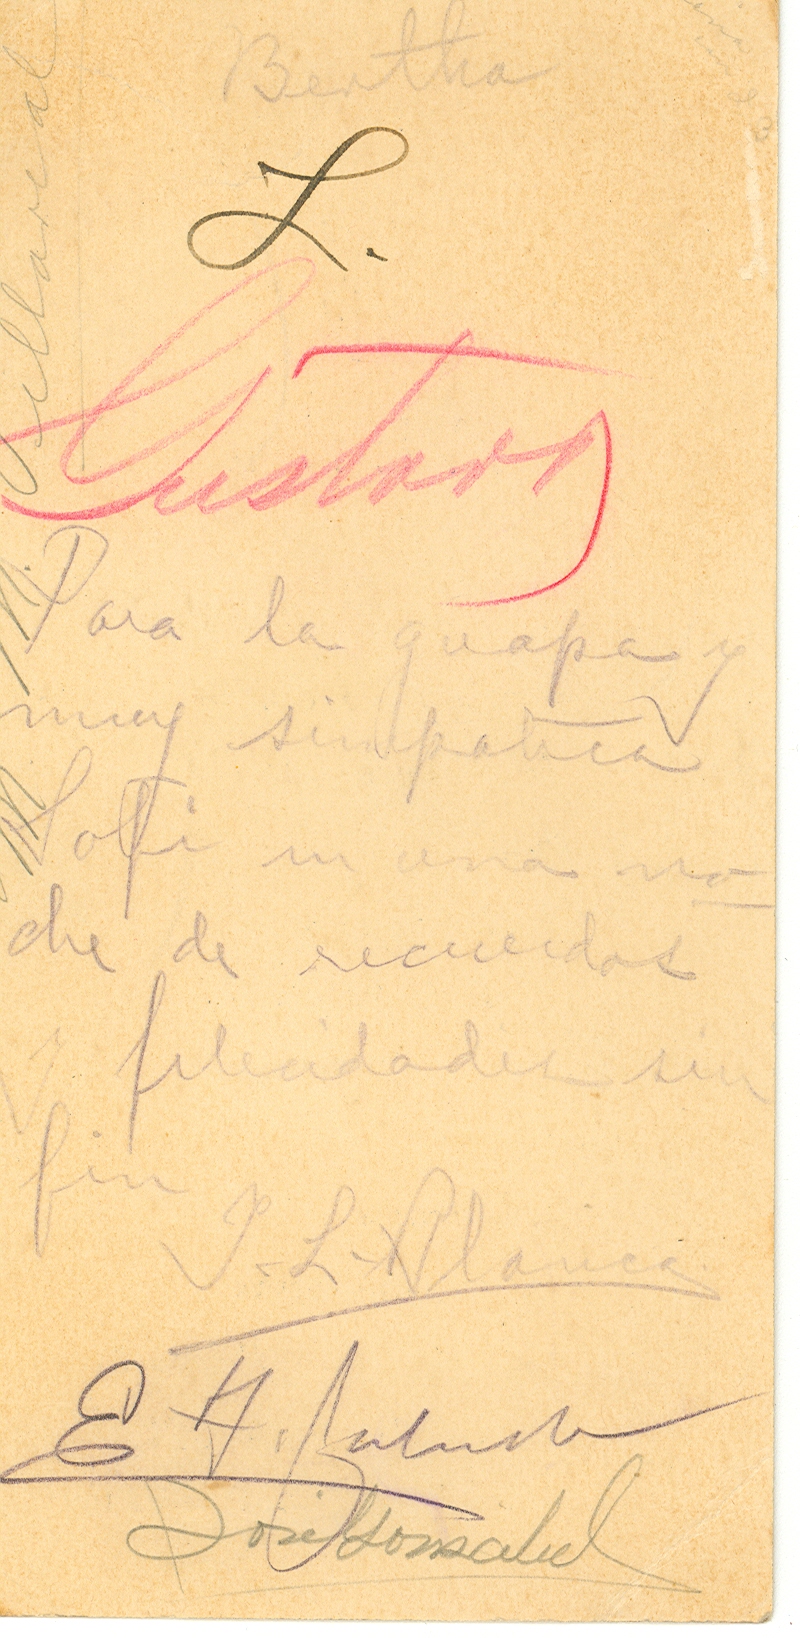 Bertha
L.
Gustavo
Para la guapa y
muy simpatica
Sofi en una no
che de recuerdos
y felicidades sin
fin
J. L.
E H.
José
Villareal
M. M.